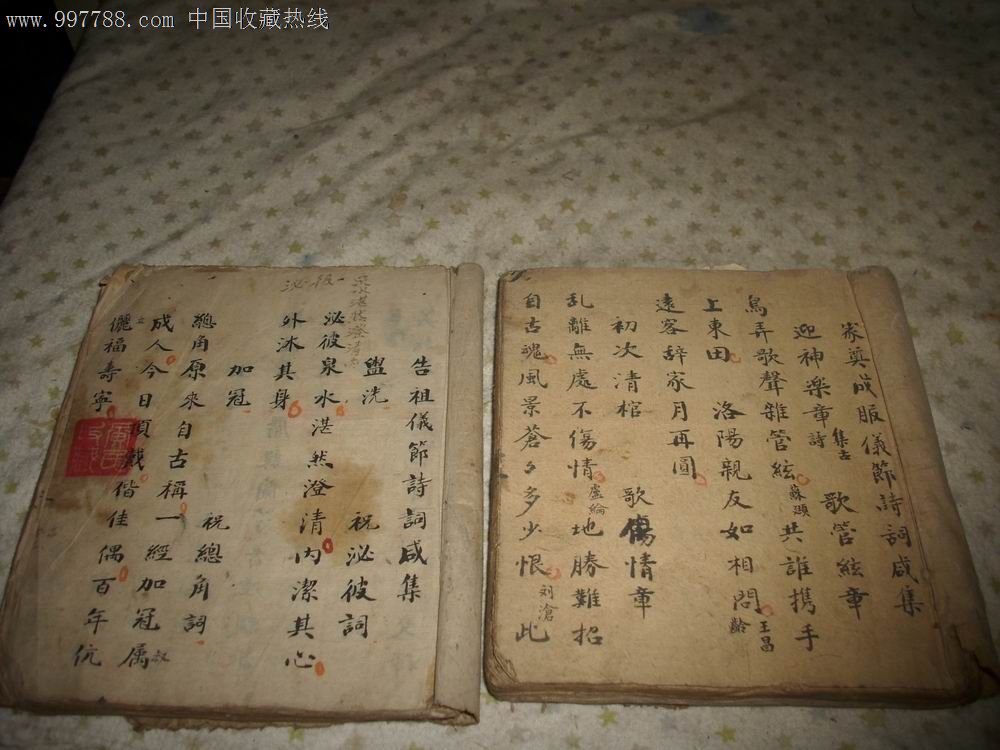 www.997788.com 中国收藏热线
家奠成服儀節詩詞咸集
迎神楽章詩 集古 歌管絃章
鳥弄歌聲雜管絃 蘇頲 共誰携手
上東田 洛陽親友如相問 王昌齡
遠客辞家月再圓
初次清棺 歌傷情章
乱離無處不傷情 盧綸 地勝難招
自古魂風景蒼々多少恨 刘滄 此
告祖儀節詩詞咸集
盥洗 祝泌彼詞
泌彼泉水湛然澄清内潔其心
外沐其身
加冠 祝總角詞
總角原來自古稱一經加冠属
成人今日頂戴偕佳偶百年伉
儷福壽寧